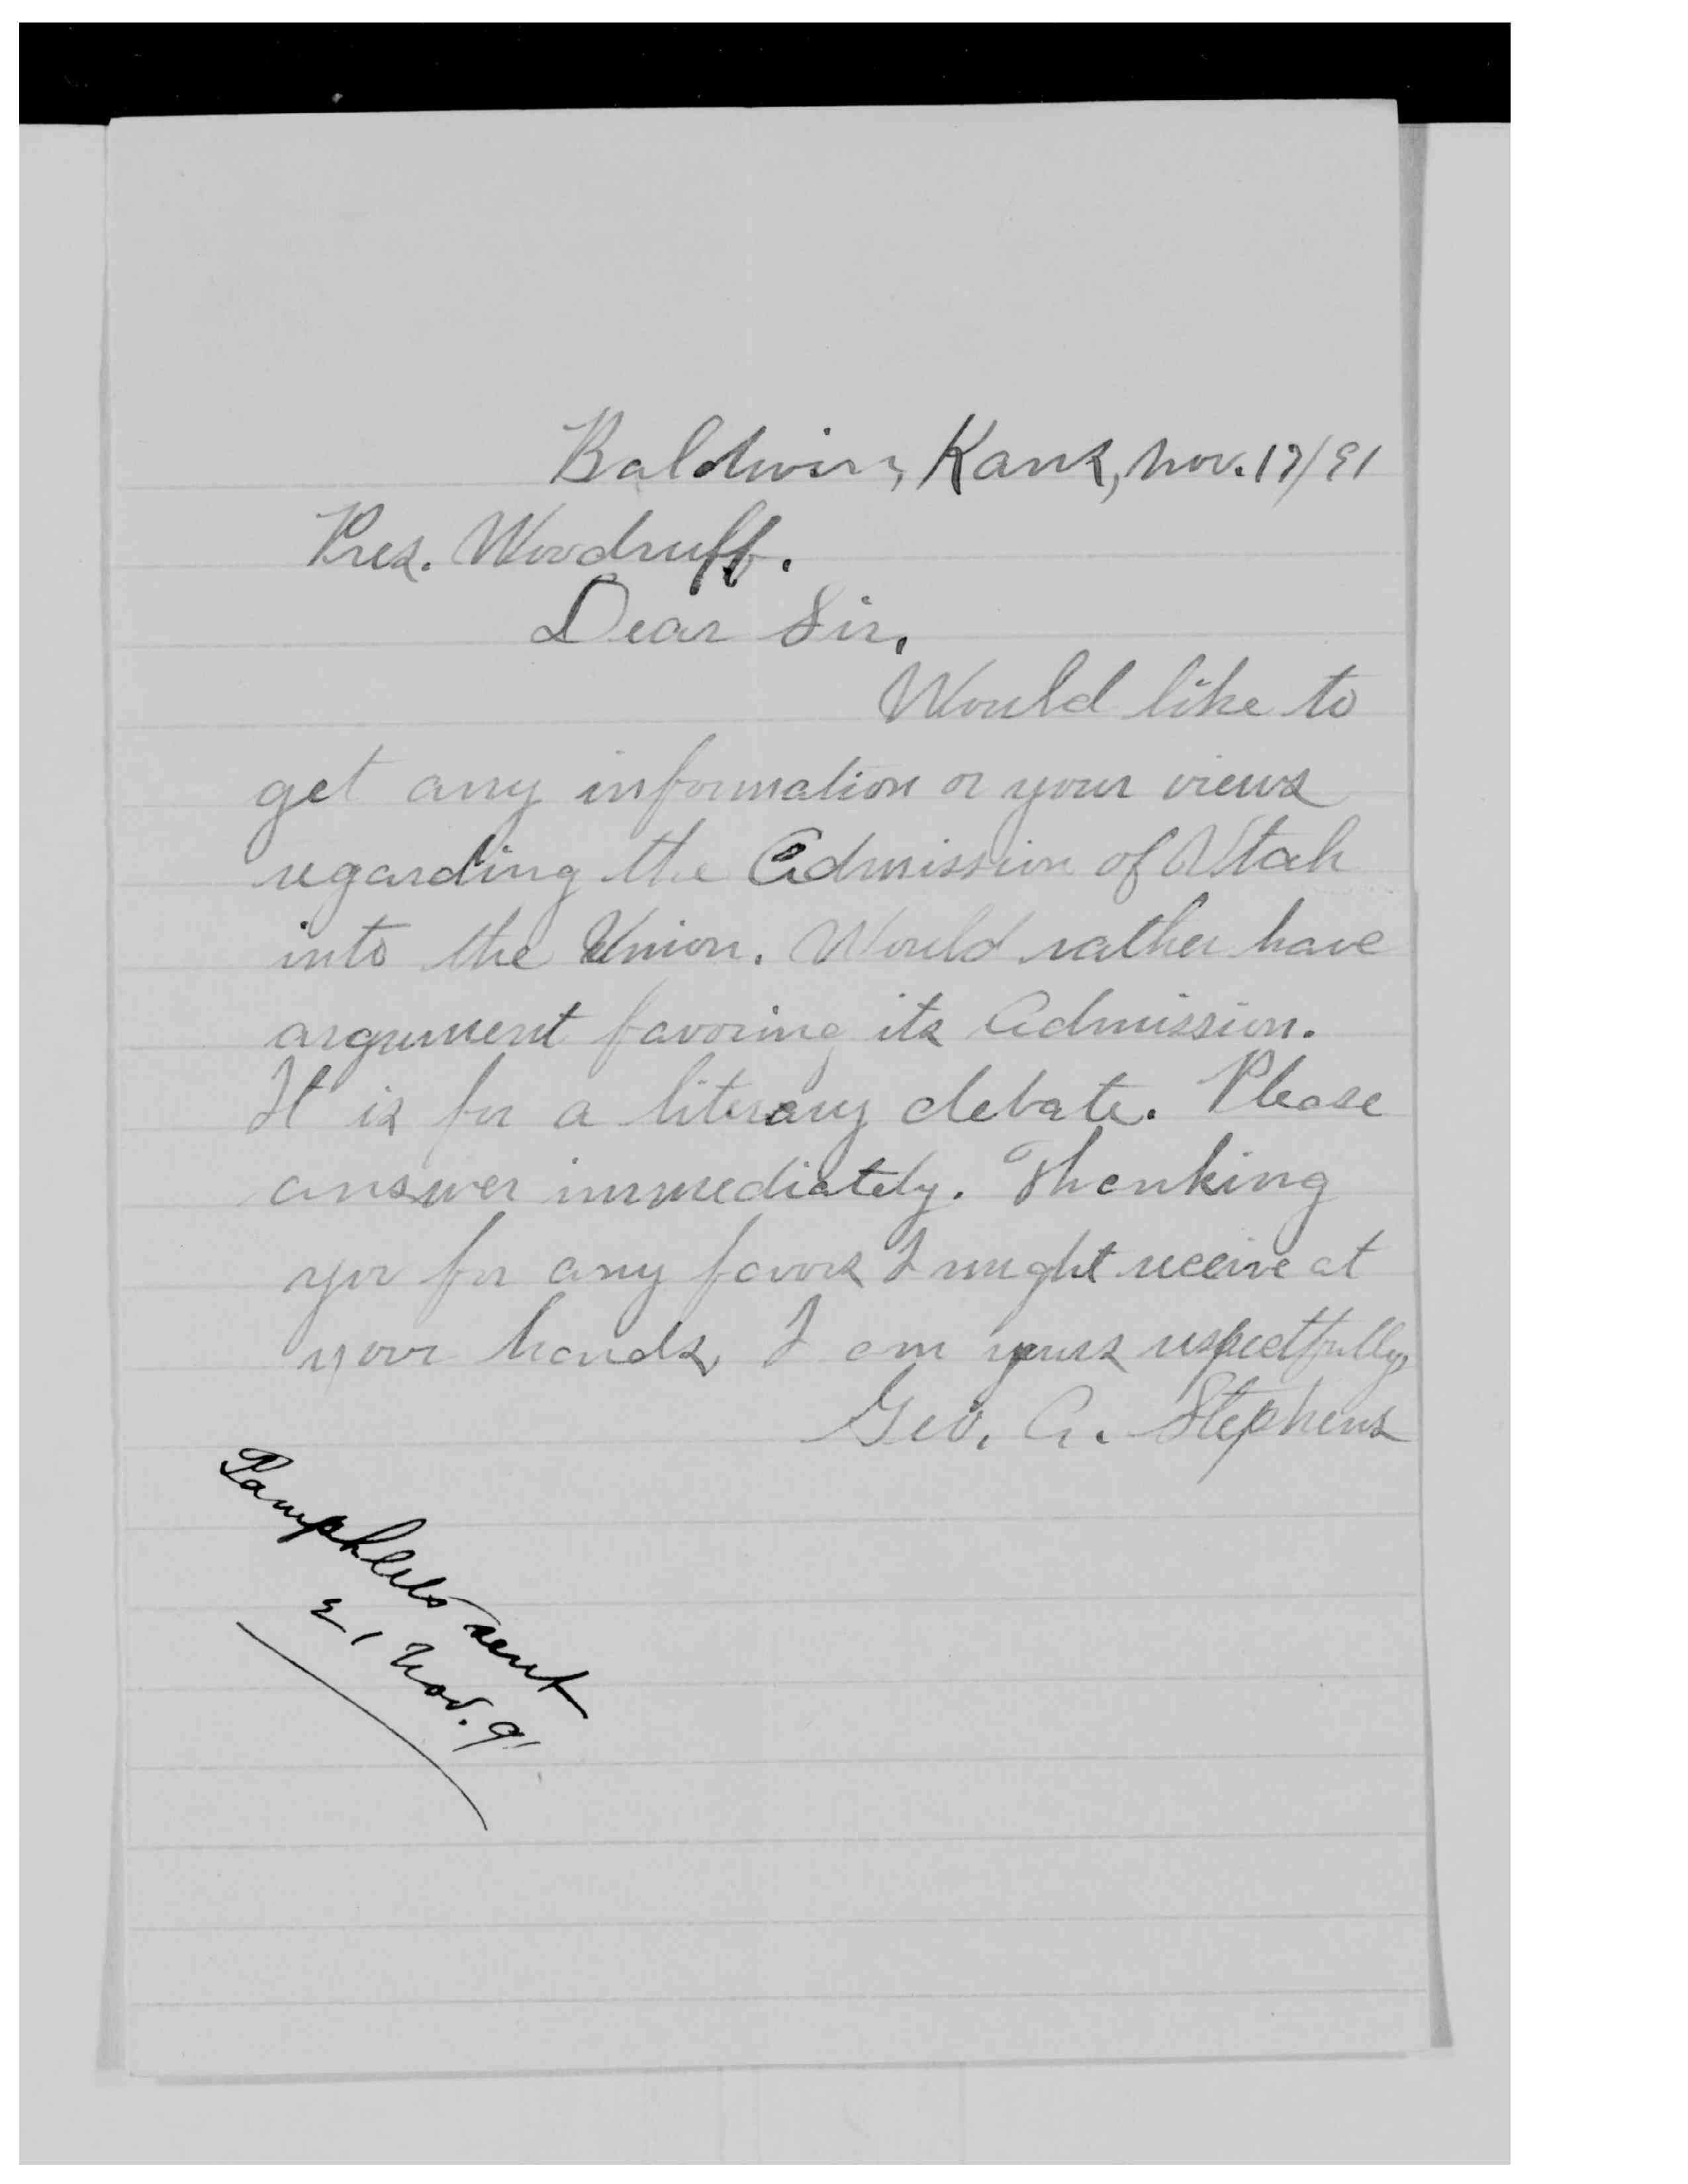 Baldwin, Kans, Nov. 17/91
Pres. Woodruff.
Dear Sir,
Would like to
get any information or your views
regarding the Admission of Utah
into the Union. Would rather have
argument favoring its Admission.
It is for a literary debate. Please
answer immediately. Thanking
you for any favors I might receive at
your hands, I am yours respectfully,
Geo. A. Stephens
Pamphlets sent
21 Nov. 91